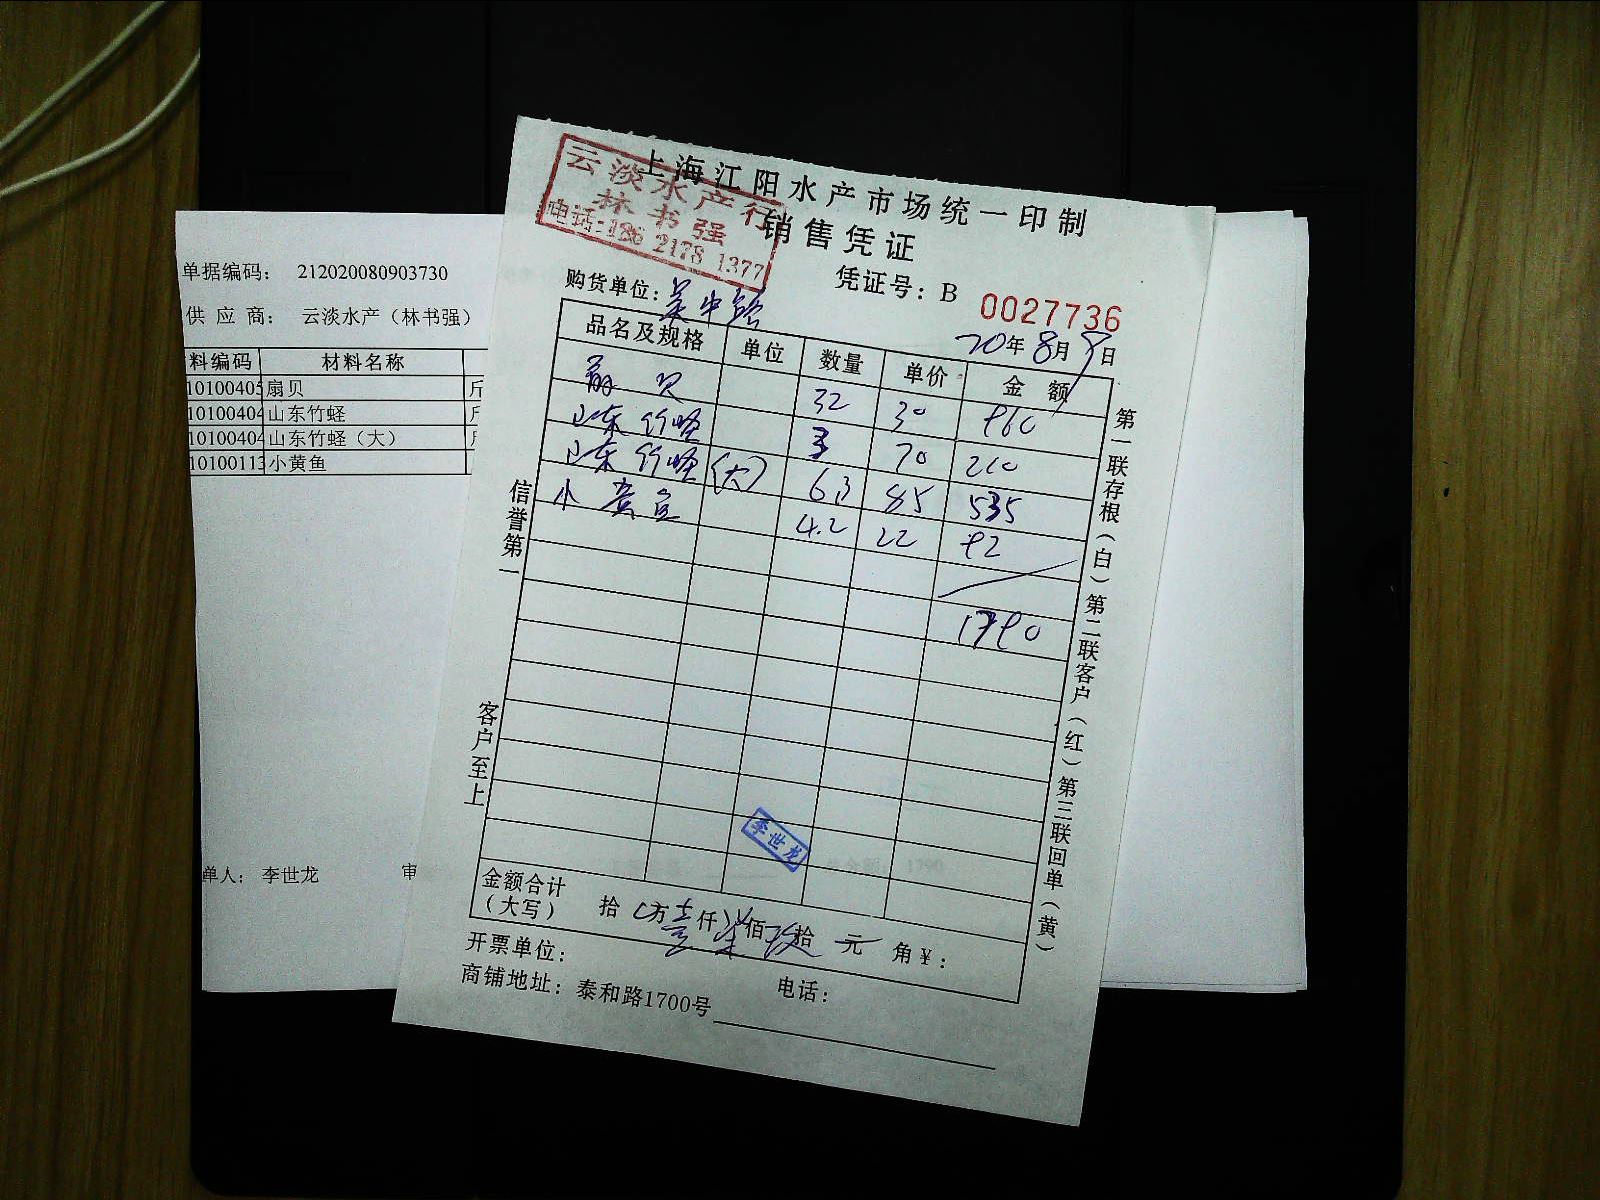 单据编码： 212020080903730
供 应 商： 云淡水产（林书强）
料编码 材料名称
10100405 扇贝 斤
10100404 山东竹蛏 斤
10100404 山东竹蛏（大）
10100113 小黄鱼
单人： 李世龙 审
上海江阳水产市场统一印制
销售凭证
云淡水产行
林书强
电话:186 2178 1377
凭证号：B 0027736
购货单位：吴中路
20年8月9日
品名及规格 单位 数量 单价 金 额
扇贝 32 30 960
山东竹蛏 3 70 210
山东竹蛏（大） 6.3 85 535
小黄鱼 4.2 22 92
1790
李世龙
金额合计
（大写） 拾 万壹仟柒佰玖拾 元 角¥：
开票单位：
电话：
商铺地址：泰和路1700号
信誉第一
客户至上
第一联存根（白）第二联客户（红）第三联回单（黄）